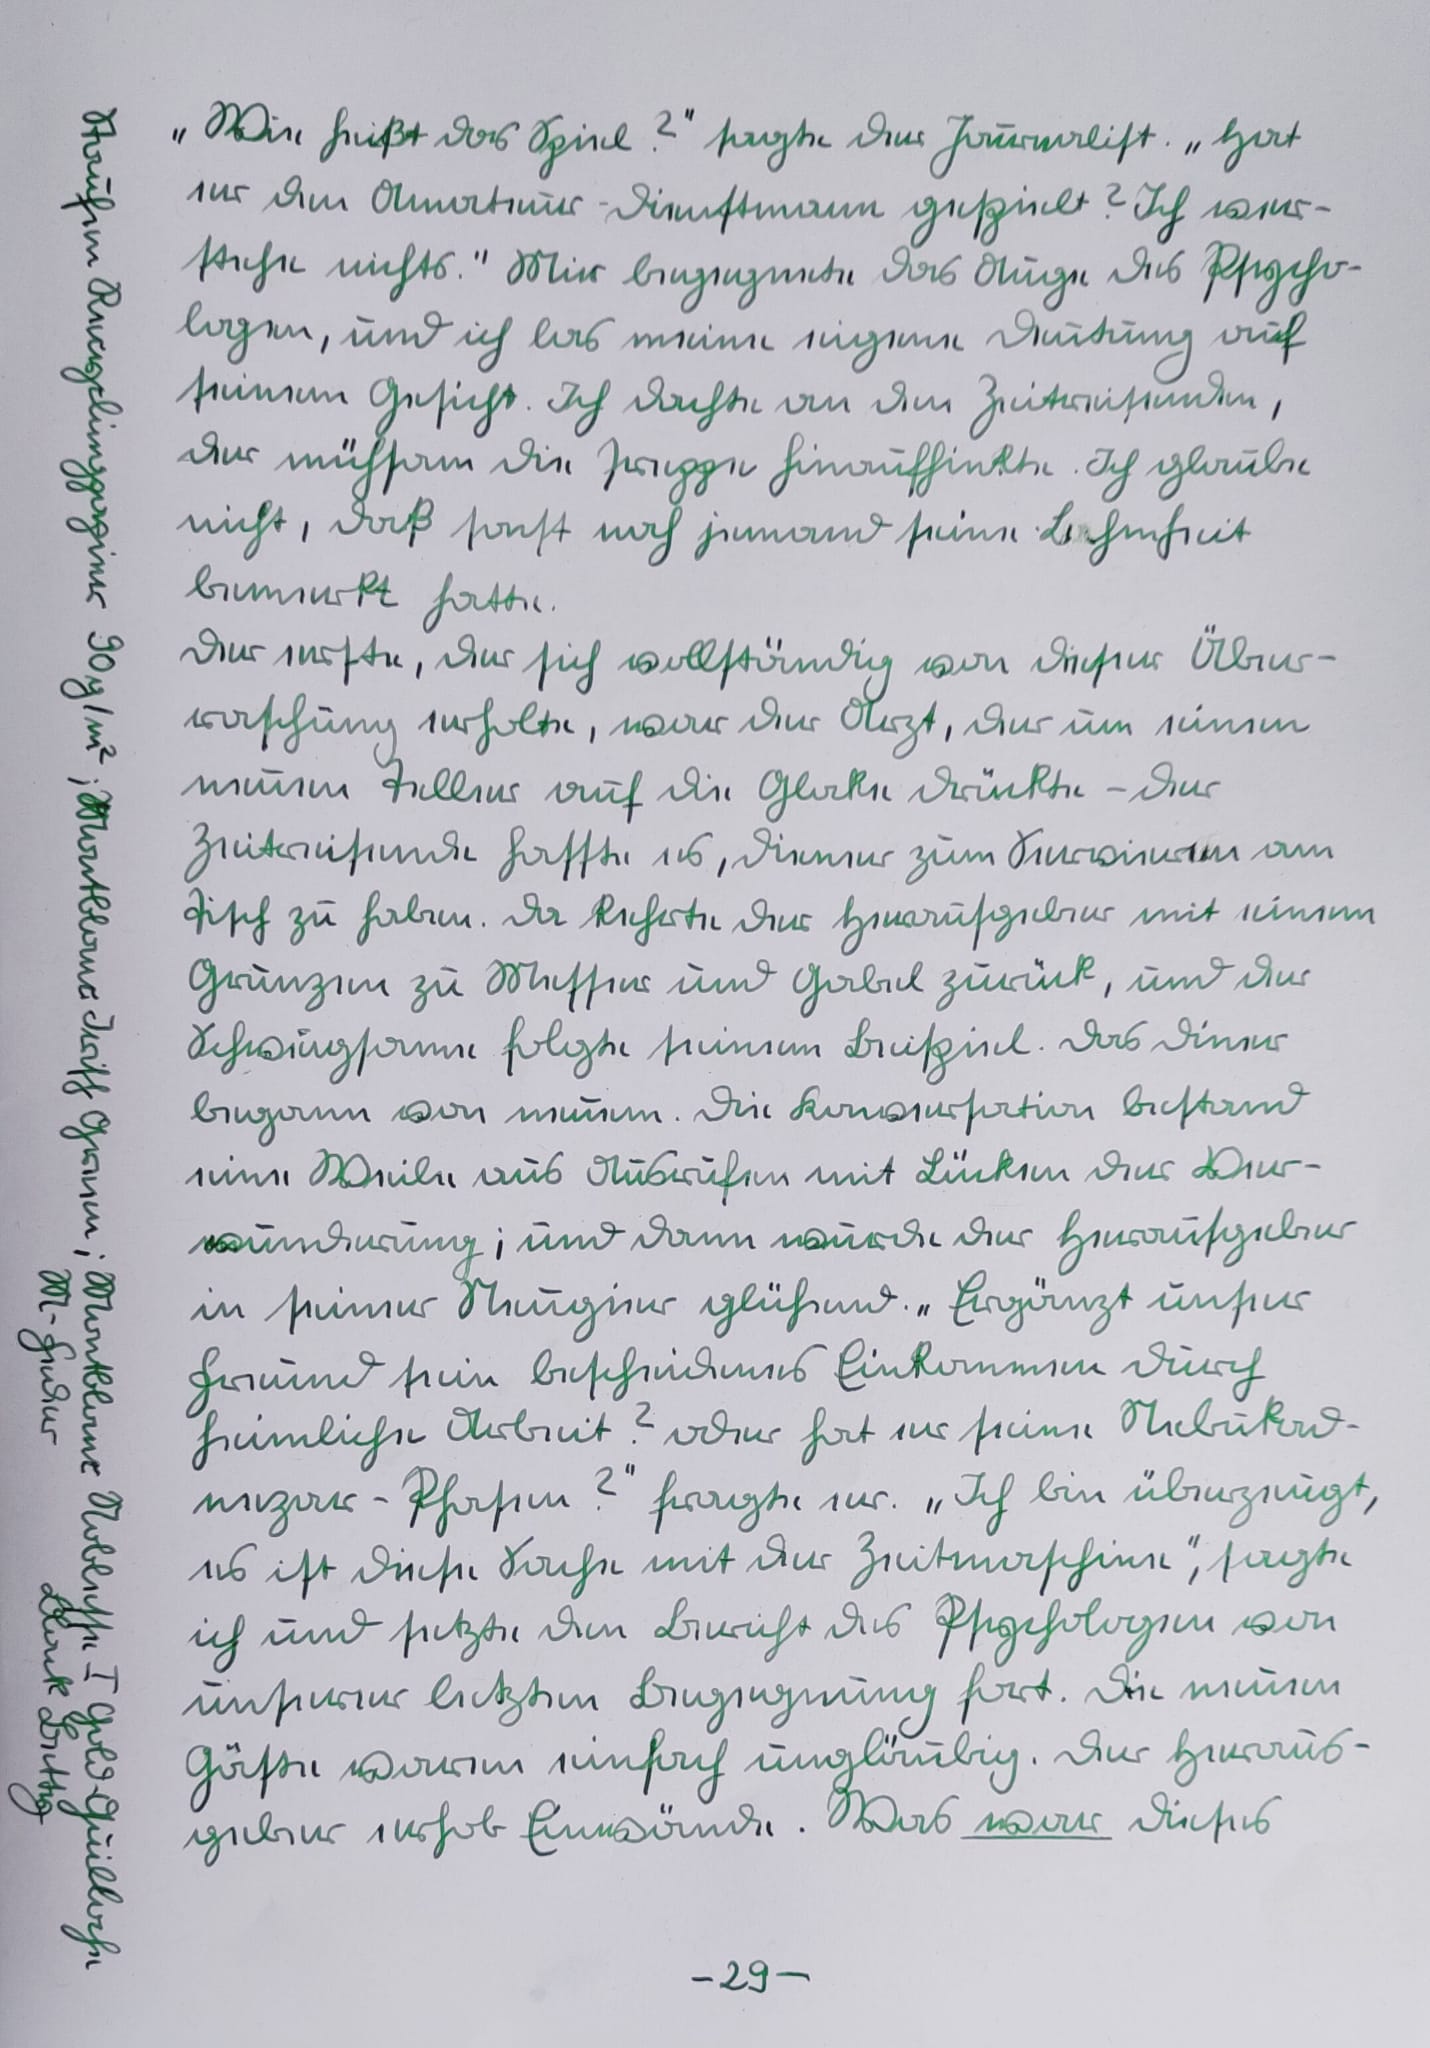 „Wie heißt das Spiel?" sagte der Journalist. „Hat
er den Amateur-Dienstmann gespielt? Ich ver-
stehe nichts." Mir begegnete das Auge des Psycho-
logen, und ich las meine eigene Deutung auf
seinem Gesicht. Ich dachte an den Zeitreisenden,
der mühsam die Treppe hinaufhinkte. Ich glaube
nicht, daß sonst noch jemand seine Lahmheit
bemerkt hatte.
Der erste, der sich vollständig von dieser Über-
raschung erholte, war der Arzt, der um einen
neuen Teller auf die Glocke drückte – der
Zeitreisende haßte es, Diener zum Servieren am
Tisch zu haben. Da kehrte der Herausgeber mit einem
Grunzen zu Messer und Gabel zurück, und der
Schweigsame folgte seinem Beispiel. Das Diner
begann von neuem. Die Konversation bestand
eine Weile aus Ausrufen mit Lücken der Ver-
wunderung; und dann wurde der Herausgeber
in seiner Neugier glühend. „Ergänzt unser
Freund sein bescheidenes Einkommen durch
heimliche Arbeit? oder hat er seine Nebukad-
nezar-Phasen?" fragte er. „Ich bin überzeugt,
es ist diese Sache mit der Zeitmaschine", sagte
ich und setzte den Bericht des Psychologen von
unserer letzten Begegnung fort. Die neuen
Gäste waren einfach ungläubig. Der Heraus-
geber erhob Einwände. Was war dieses
-29-
Staufen Recyclingpapier 90g/m²; Montblanc Irish Green; Montblanc Noblesse I Gold-Guilloche
M-Feder